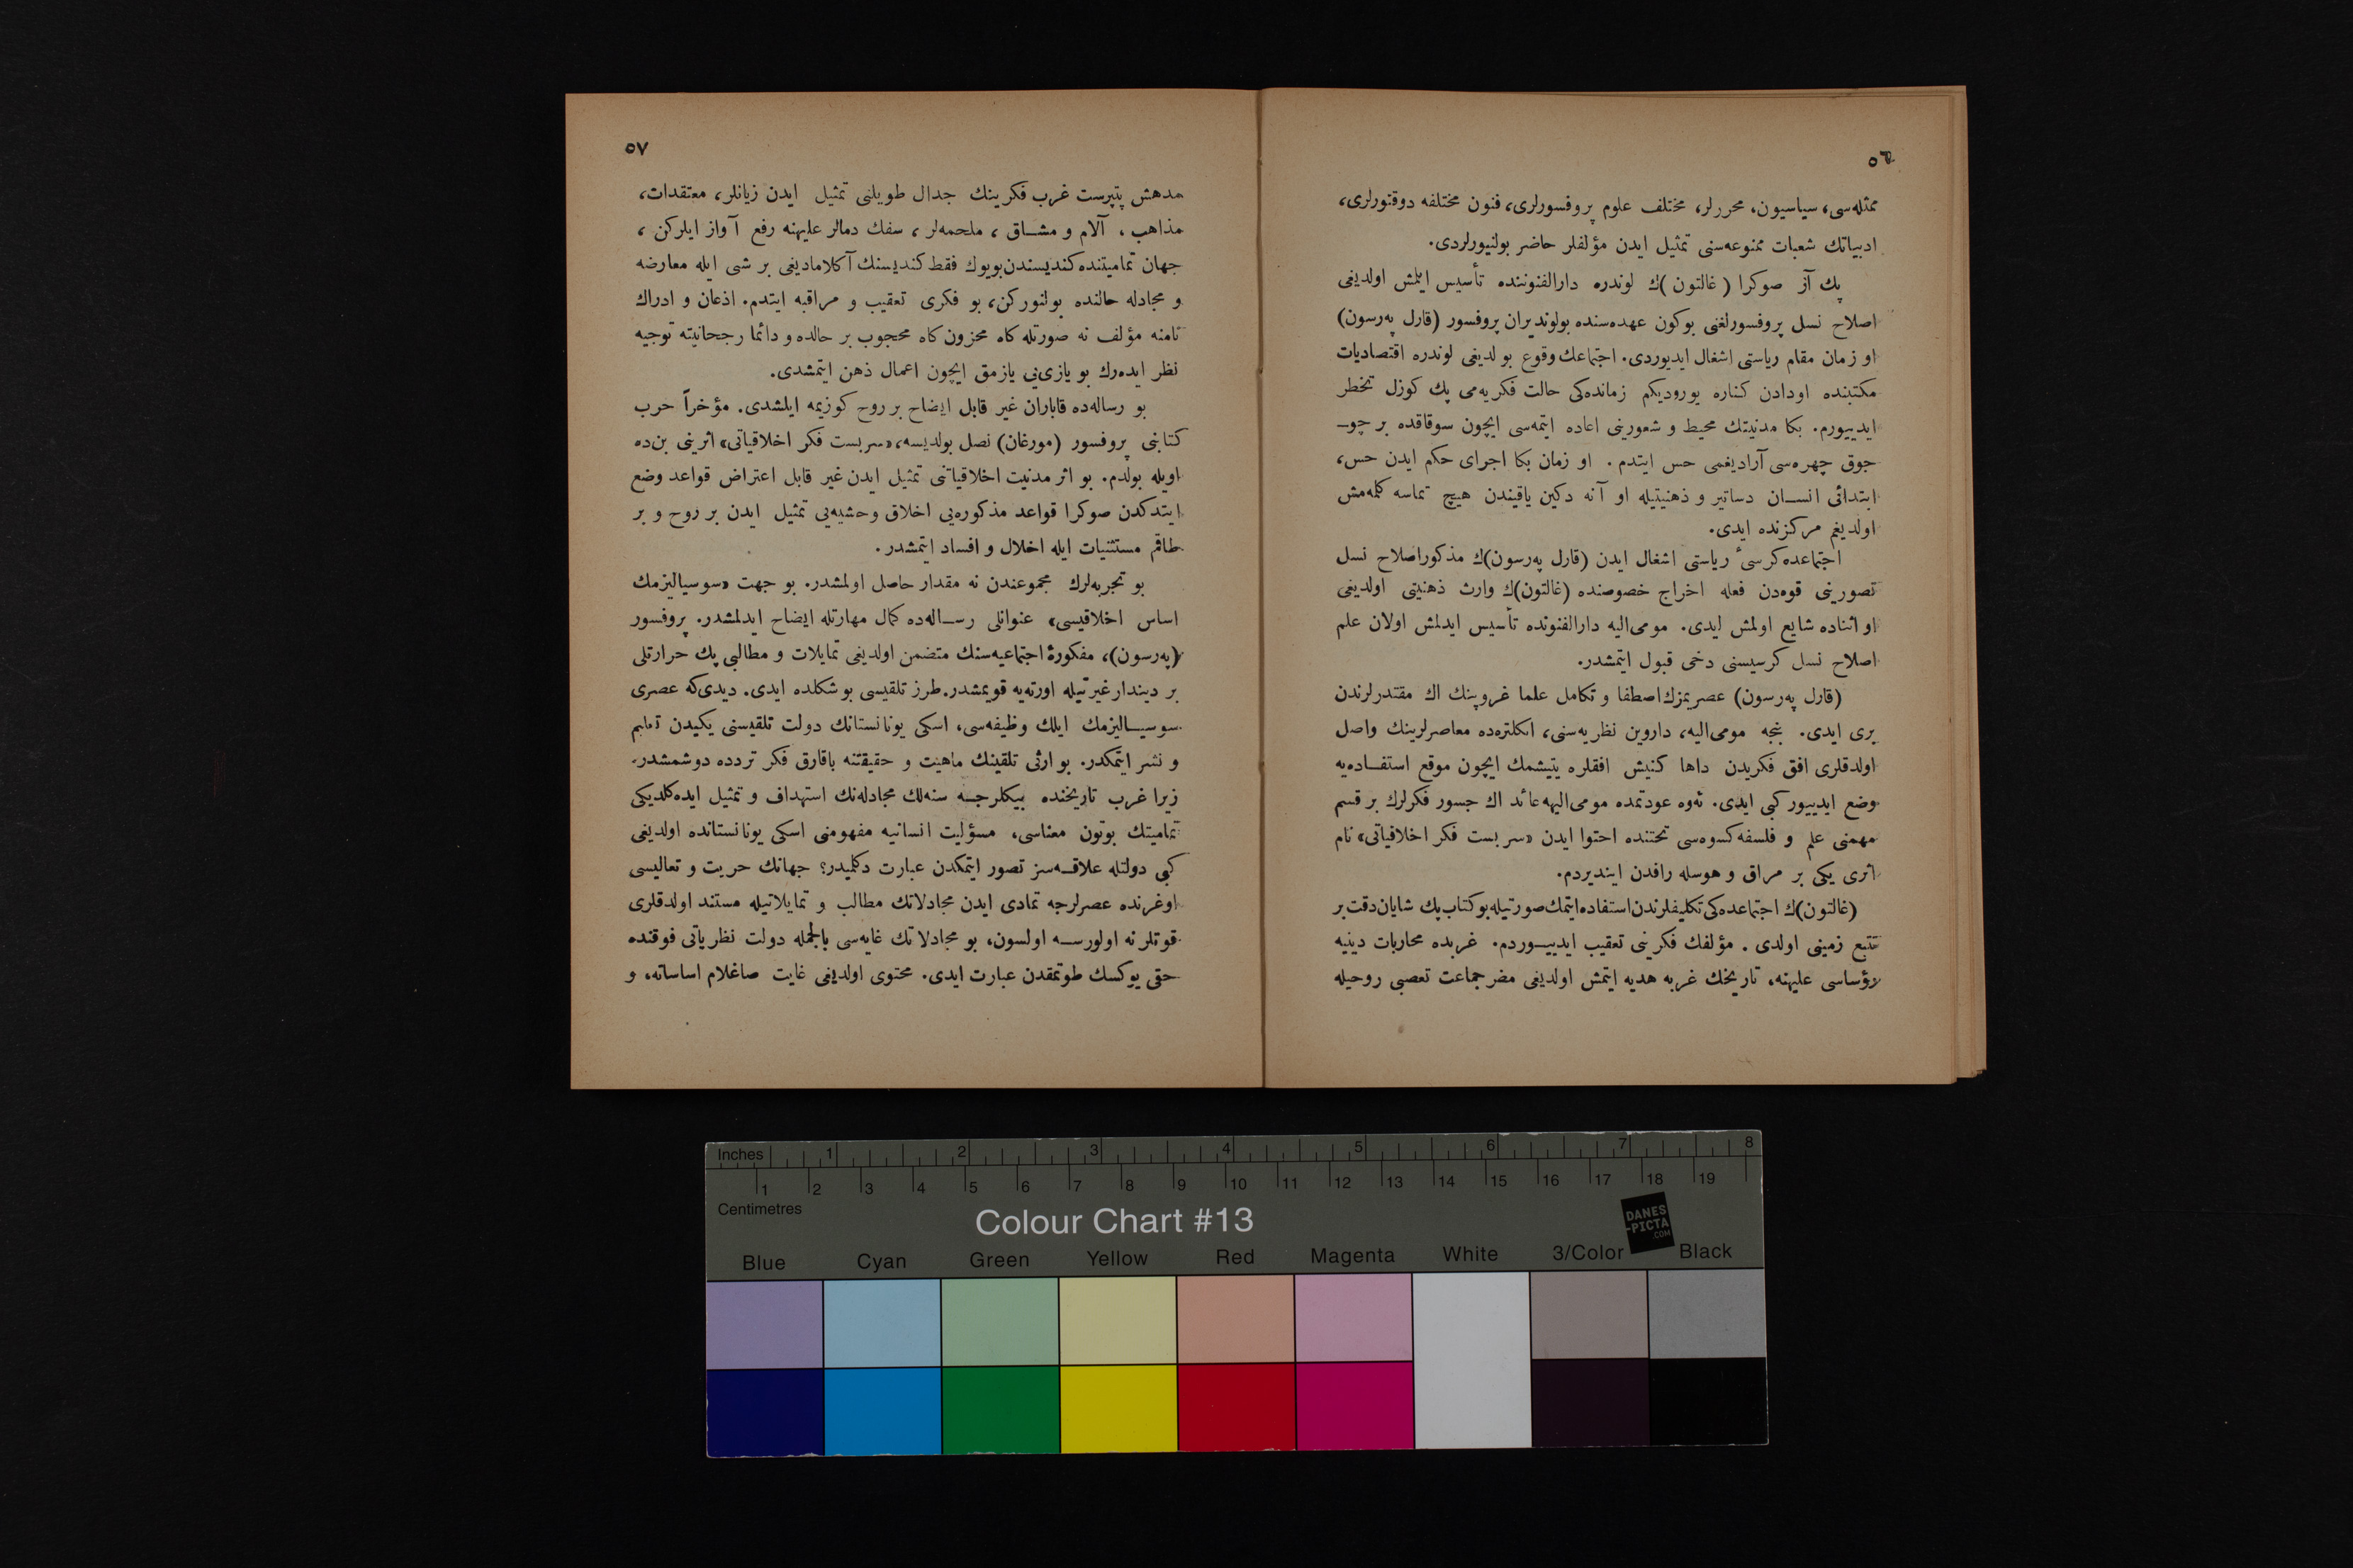 ٥٦
ممثله‌سی، سیاسیون، محررلر، مختلف علوم پروفسورلری، فنون مختلفه دوقتورلری،
ادبیاتك شعبات ممنوعه‌سنی تمثیل ایدن مؤلفلر حاضر بولنیورلردی.
پك آز صوكرا (غالتون)ك لوندره دارالفنوننده تأسیس ایلمش اولدیغی
اصلاح نسل پروفسورلغنی بوكون عهده‌سنده بولوندیران پروفسور (قارل په‌رسون)
او زمان مقام ریاستی اشغال ایدیوردی. اجتماعك وقوع بولدیغی لوندره اقتصادیات
مكتبنده اودادن كناره یورودیكم زمانده‌كی حالت فكریه‌می پك كوزل تخطر
ایدییورم. بكا مدنیتك محیط و شعورینی اعاده ایتمه‌سی ایچون سوقاقده بر چو-
جوق چهره‌سی آرادیغمی حس ایتدم. او زمان بكا اجرای حكم ایدن حس،
ابتدائی انسان دساتیر و ذهنیتیله او آنه دكین یاقیندن هیچ تماسه كلمه‌مش
اولدیغم مركزنده ایدی.
اجتماعده كرسیٔ ریاستی اشغال ایدن (قارل په‌رسون)ك مذكور اصلاح نسل
تصورینی قوه‌دن فعله اخراج خصوصنده (غالتون)ك وارث ذهنیتی اولدیغی
او اثناده شایع اولمش ایدی. مومی‌الیه دارالفنونده تأسیس ایدلمش اولان علم
اصلاح نسل كرسیسنی دخی قبول ایتمشدر.
(قارل په‌رسون) عصریمزك اصطفا و تكامل علما غروپینك اك مقتدرلرندن
بری ایدی. بنجه مومی‌الیه، داروین نظریه‌سنی، انكلتره‌ده معاصرلرینك واصل
اولدقلری افق فكریدن داها كنیش افقلره یتیشمك ایچون موقع استفاده‌یه
وضع ایدییور كبی ایدی. ئه‌وه عودتمده مومی‌الیهه عائد اك جسور فكرلرك بر قسم
مهمنی علم و فلسفه كسوه‌سی تحتنده احتوا ایدن «سربست فكر اخلاقیاتی» نام
اثری یكی بر مراق و هوسله رافدن ایندیردم.
(غالتون)ك اجتماعده‌كی تكلیفلرندن استفاده ایتمك صورتیله بو كتاب پك شایان دقت بر
تتبع زمینی اولدی. مؤلفك فكرینی تعقیب ایدییوردم. غربده محاربات دینیه
رؤساسی علیهنه، تاریخك غربه هدیه ایتمش اولدیغی مضر جماعت تعصبی روحیله
٥٧
مدهش پتپرست غرب فكرینك جدال طویلنی تمثیل ایدن زیانلر، معتقدات،
مذاهب، آلام و مشاق، ملحمه‌لر، سفك دمالر علیهنه رفع آواز ایلركن،
جهان تمامیتنده كندیسندن بویوك فقط كندیسنك آكلامادیغی بر شی ایله معارضه
و مجادله حالنده بولنوركن، بو فكری تعقیب و مراقبه ایتدم. اذعان و ادراك
تامنه مؤلف نه صورتله كاه محزون كاه محجوب بر حالده و دائما رجحانیته توجیه
نظر ایده‌رك بو یازی‌یی یازمق ایچون اعمال ذهن ایتمشدی.
بو رساله‌ده قاباران غیر قابل ایضاح بر روح كوزیمه ایلشدی. مؤخراً حرب
كتابنی پروفسور (مورغان) نصل بولدیسه، «سربست فكر اخلاقیاتی» اثرینی بن‌ده
اویله بولدم. بو اثر مدنیت اخلاقیاتنی تمثیل ایدن غیر قابل اعتراض قواعد وضع
ایتدكدن صوكرا قواعد مذكوره‌یی اخلاق وحشیه‌یی تمثیل ایدن بر روح و بر
طاقم مستثنیات ایله اخلال و افساد ایتمشدر.
بو تجربه‌لرك مجموعندن نه مقدار حاصل اولمشدر. بو جهت «سوسیالیزمك
اساس اخلاقیسی» عنوانلی رساله‌ده كمال مهارتله ایضاح ایدلمشدر. پروفسور
(په‌رسون)، مفكورهٔ اجتماعیه‌سنك متضمن اولدیغی تمایلات و مطالبی پك حرارتلی
بر دیندار غیرتیله اورته‌یه قویمشدر. طرز تلقیسی بو شكلده ایدی. دیدی‌كه عصری
سوسیالیزمك ایلك وظیفه‌سی، اسكی یونانستانك دولت تلقیسنی یكیدن تعلیم
و نشر ایتمكدر. بو ارثی تلقینك ماهیت و حقیقتنه باقارق فكر تردده دوشمشدر.
زیرا غرب تاریخنده بیكلرجه سنه‌لك مجادله‌نك استهداف و تمثیل ایده‌كلدیكی
تمامیتك بوتون معناسی، مسؤلیت انسانیه مفهومنی اسكی یونانستانده اولدیغی
كبی دولتله علاقه‌سز تصور ایتمكدن عبارت دكلمیدر؟ جهانك حریت و تعالیسی
اوغرنده عصرلرجه تمادی ایدن مجادلاتك مطالب و تمایلاتیله مستند اولدقلری
قوتلر نه اولورسه اولسون، بو مجادلاتك غایه‌سی بالجمله دولت نظریاتی فوقنده
حتی یوكسك طوتمقدن عبارت ایدی. محتوی اولدیغی غایت صاغلام اساساته، و
Inches 1 2 3 4 5 6 7 8
1 2 3 4 5 6 7 8 9 10 11 12 13 14 15 16 17 18 19
Centimetres
Colour Chart #13
DANES
-PICTA
.COM
Blue Cyan Green Yellow Red Magenta White 3/Color Black